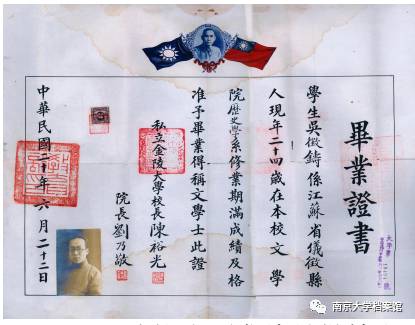 畢業證書
學生吳徵鑄係江蘇省儀徵縣
人現年二十四歲在本校文學
院歷史學系修業期滿成績及格
准予畢業得稱文學士此證
私立金陵大學校長陳裕光
院長劉乃敬
中華民國二十年六月二十二日
南京大学档案馆